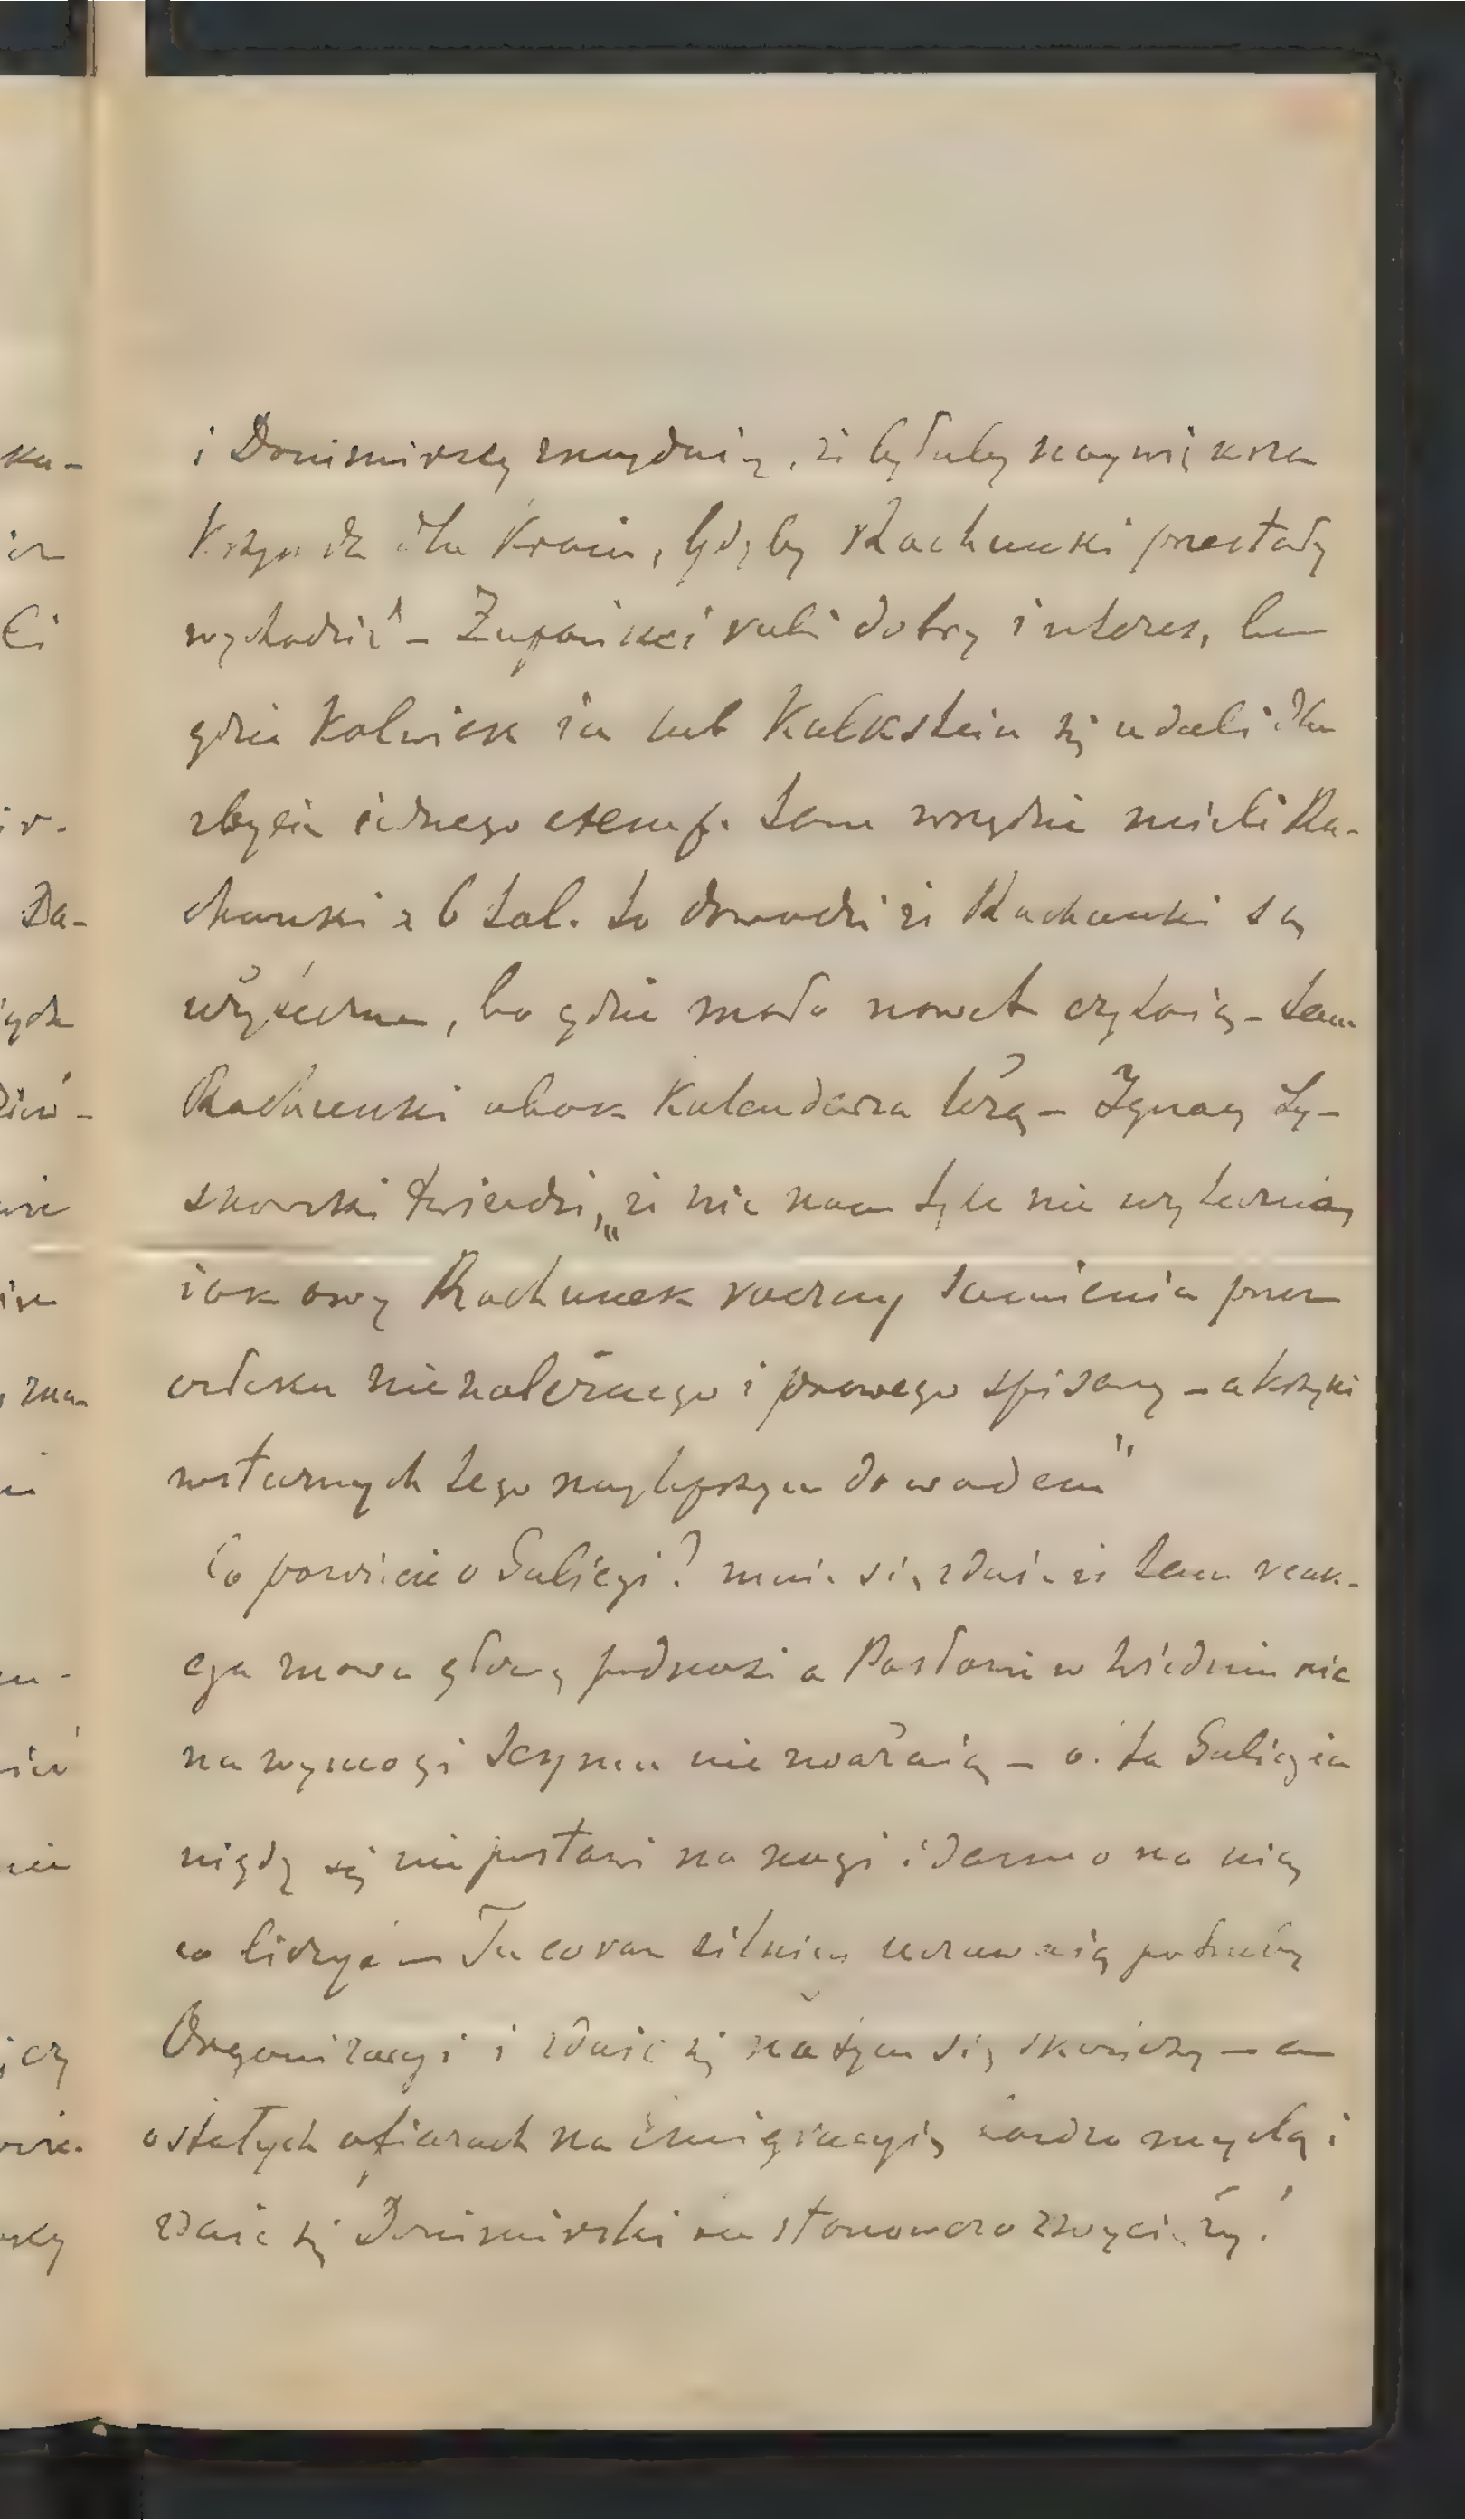 i Donimirscy znaydują, że byłaby naywiększa
Krzywda dla Kraiu, gdyby Rachunki przestały
wychodzić – Żupański robi dobry interes, bo
gdzie kolwiek ia lub Kalkstein się udali dla
zbycia iednego exempl. tam wszędzie mieli Ra-
chunki z 6 tal. to dowodzi że Rachunki są
użyteczne, bo gdzie mało nawet czytaią – tam
Rachunki obok Kalendarza leżą – Ignacy Ły-
skowski twierdzi, „że nic nam tyle nie
iak owy Rachunek roczny sumienia przez
człeka niezależnego i prawego spisany – a krzyki
wstecznych tego naylepszym dowodem"
Co powiecie o Galicyi? mnie się zdaie że tam reak-
cya znowu głowę podnosi a Posłowie w Wiedniu nic
na wymogi Seymu nie zważaią – o. ta Galicyia
nigdy się nie postawi na nogi i darmo na nią
co liczyć – Tu coraz silniey uznawaią potrzebę
Organizacyi i zdaie się na tym się skończy – o
stałych ofiarach na Emigracyią bardzo myślą i
zdaie się Donimirski stanowczo zwycięży!
ka-
Ci
ir.
Da-
zna-
czy